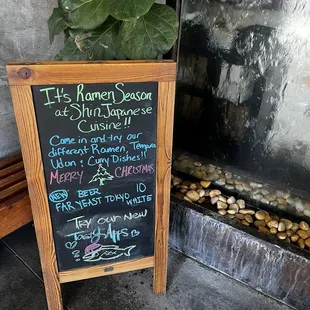 It's Ramen Season
at Shin Japanese
Cuisine!!
Come in and try our
different Ramen, Tempura
Udon & Curry Dishes!!
MERRY CHRISTMAS
NEW BEER 10
FAR YEAST TOKYO WHITE
Try our New